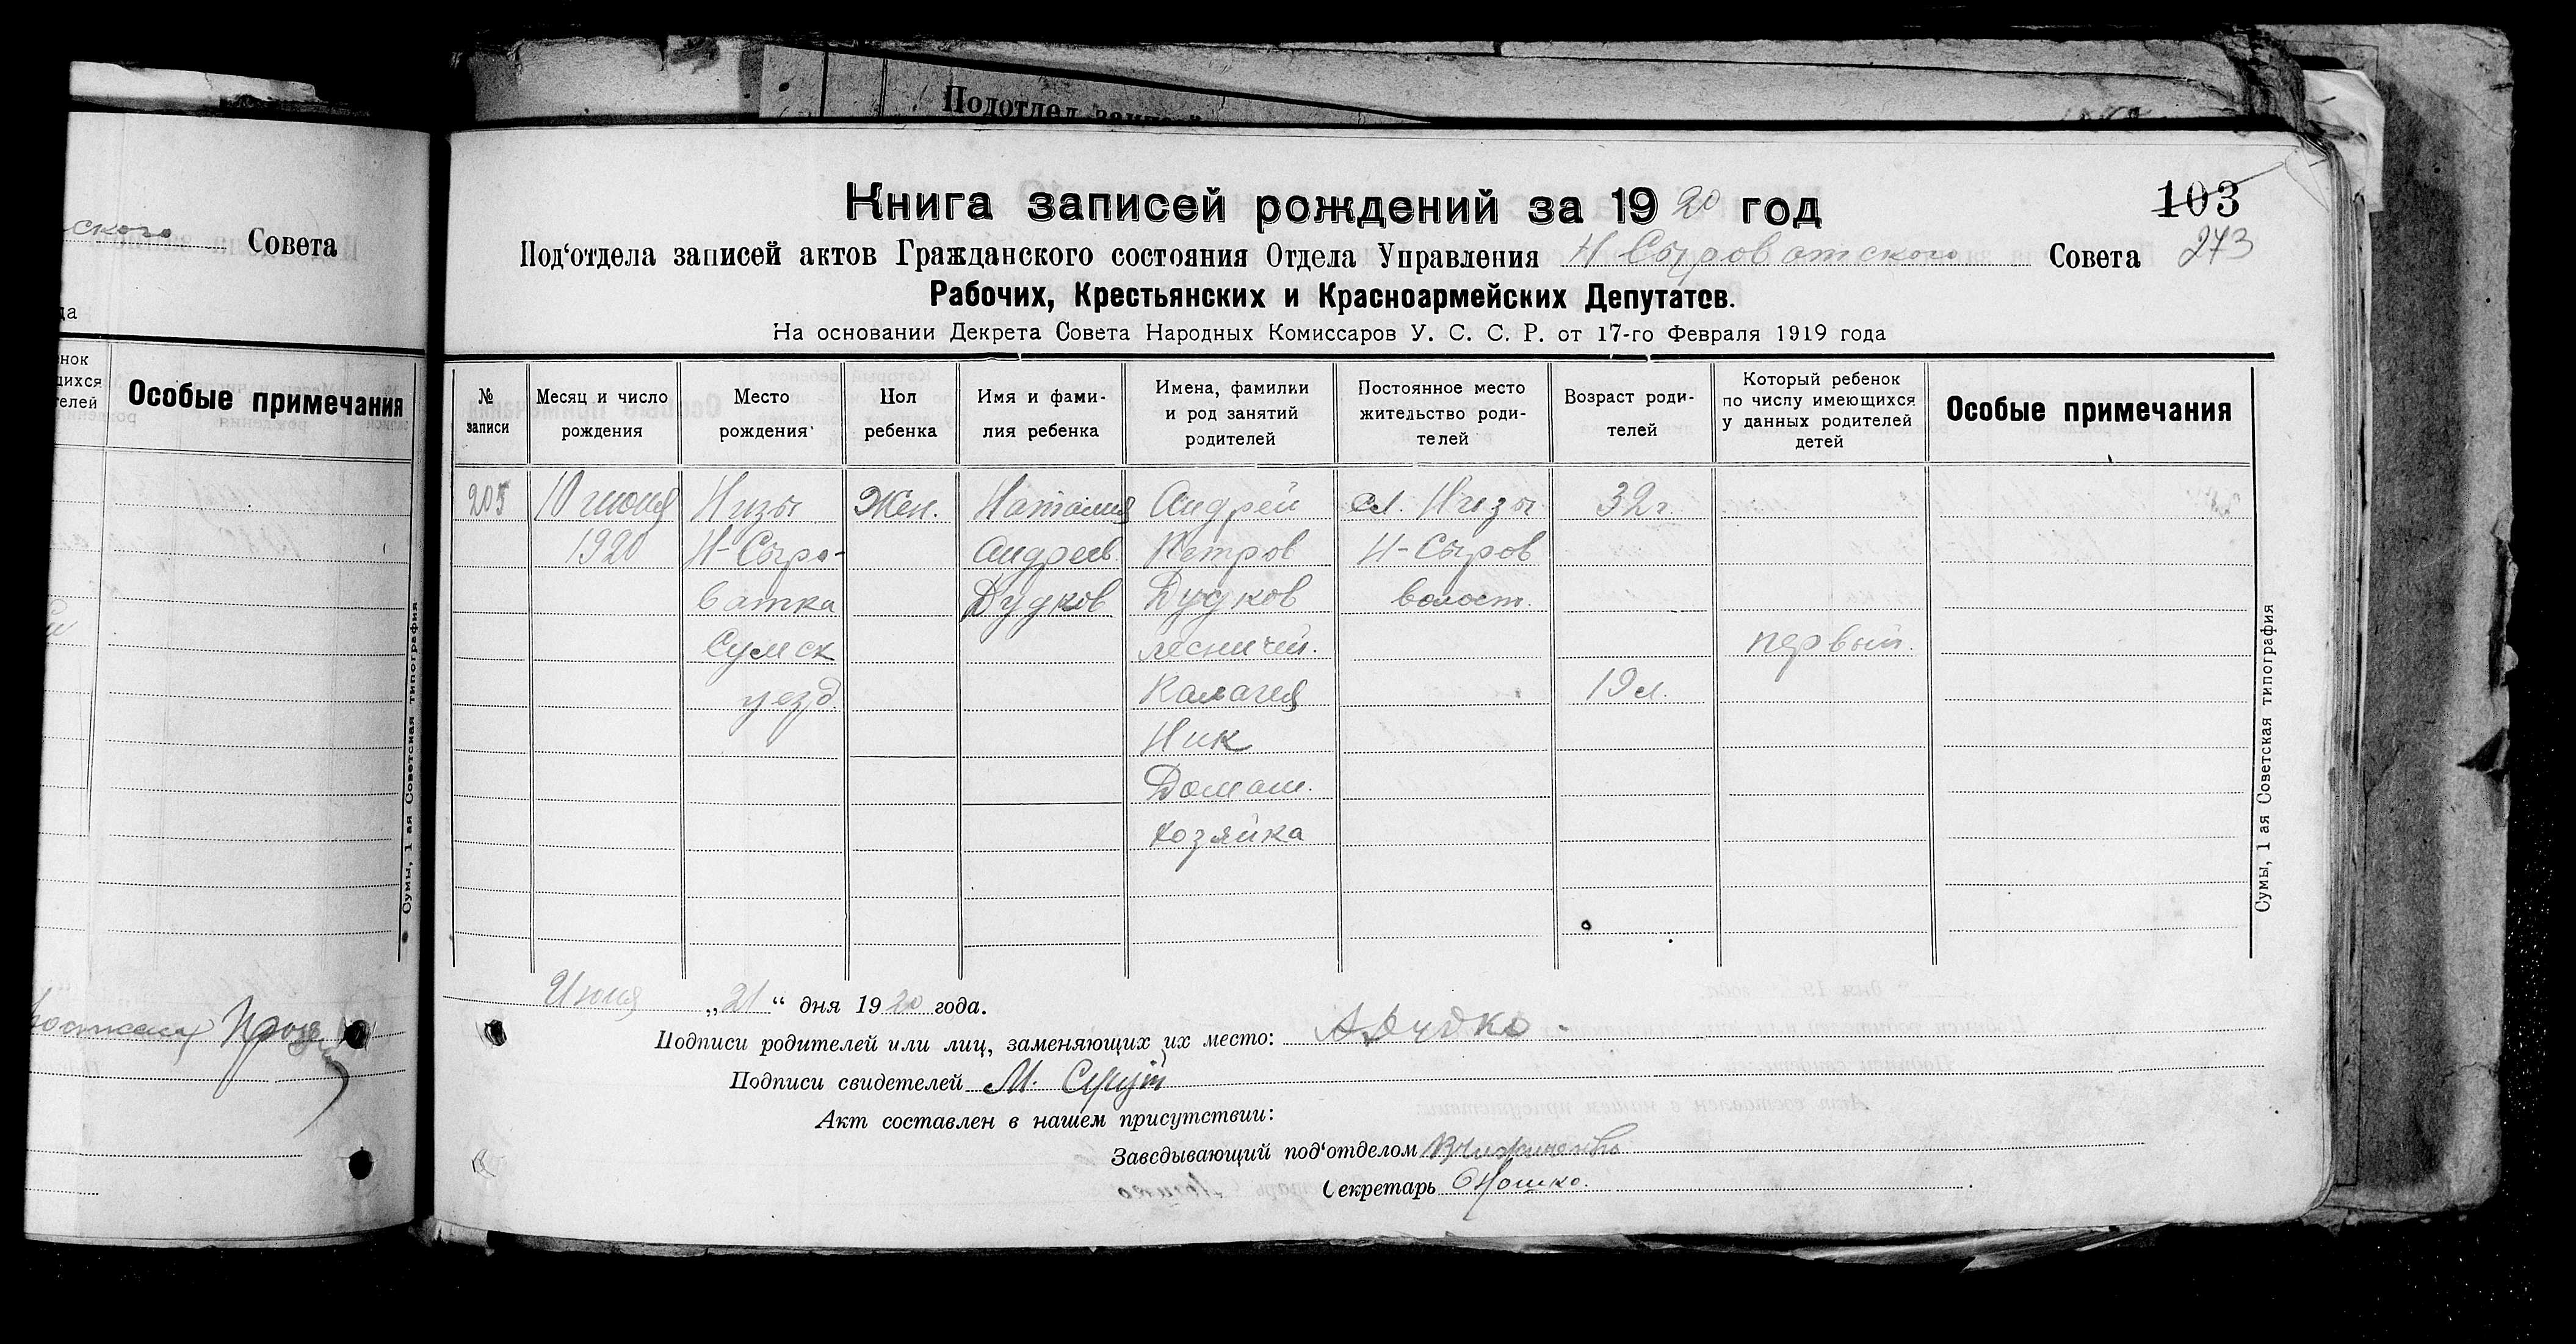 Подотдел
ского Совета
да
енок
щихся
телей
Особые примечания
Сумы, 1 ая Советская типография
Книга записей рождений за 1920 год
103
273
Под'отдела записей актов Гражданского состояния Отдела Управления Н Сыроватского Совета
Рабочих, Крестьянских и Красноармейских Депутатов.
На основании Декрета Совета Народных Комиссаров У. С. С. Р. от 17-го Февраля 1919 года
№ записи
Месяц и число рождения
Место рождения
Пол ребенка
Имя и фами-
лия ребенка
Имена, фамилии
и род занятий
родителей
Постоянное место
жительство роди-
телей
Возраст роди-
телей
Который ребенок
по числу имеющихся
у данных родителей
детей
Особые примечания
205 10 июня Низы Жен. Наталия Андрей сл. Низы 32 г.
1920 Н-Сыро- Андреев. Петров Н-Сыров
ватка Дудков Дудков волост.
Сумск лесничий. первый.
уезд 19 л.
Ник
Домаш.
хозяйка
Сумы, 1 ая Советская типография
Июня „21“ дня 1920 года.
Подписи родителей или лиц, заменяющих их место: А Дудко
Подписи свидетелей М.
Акт составлен в нашем присутствии:
Заведывающий под'отделом
Секретарь